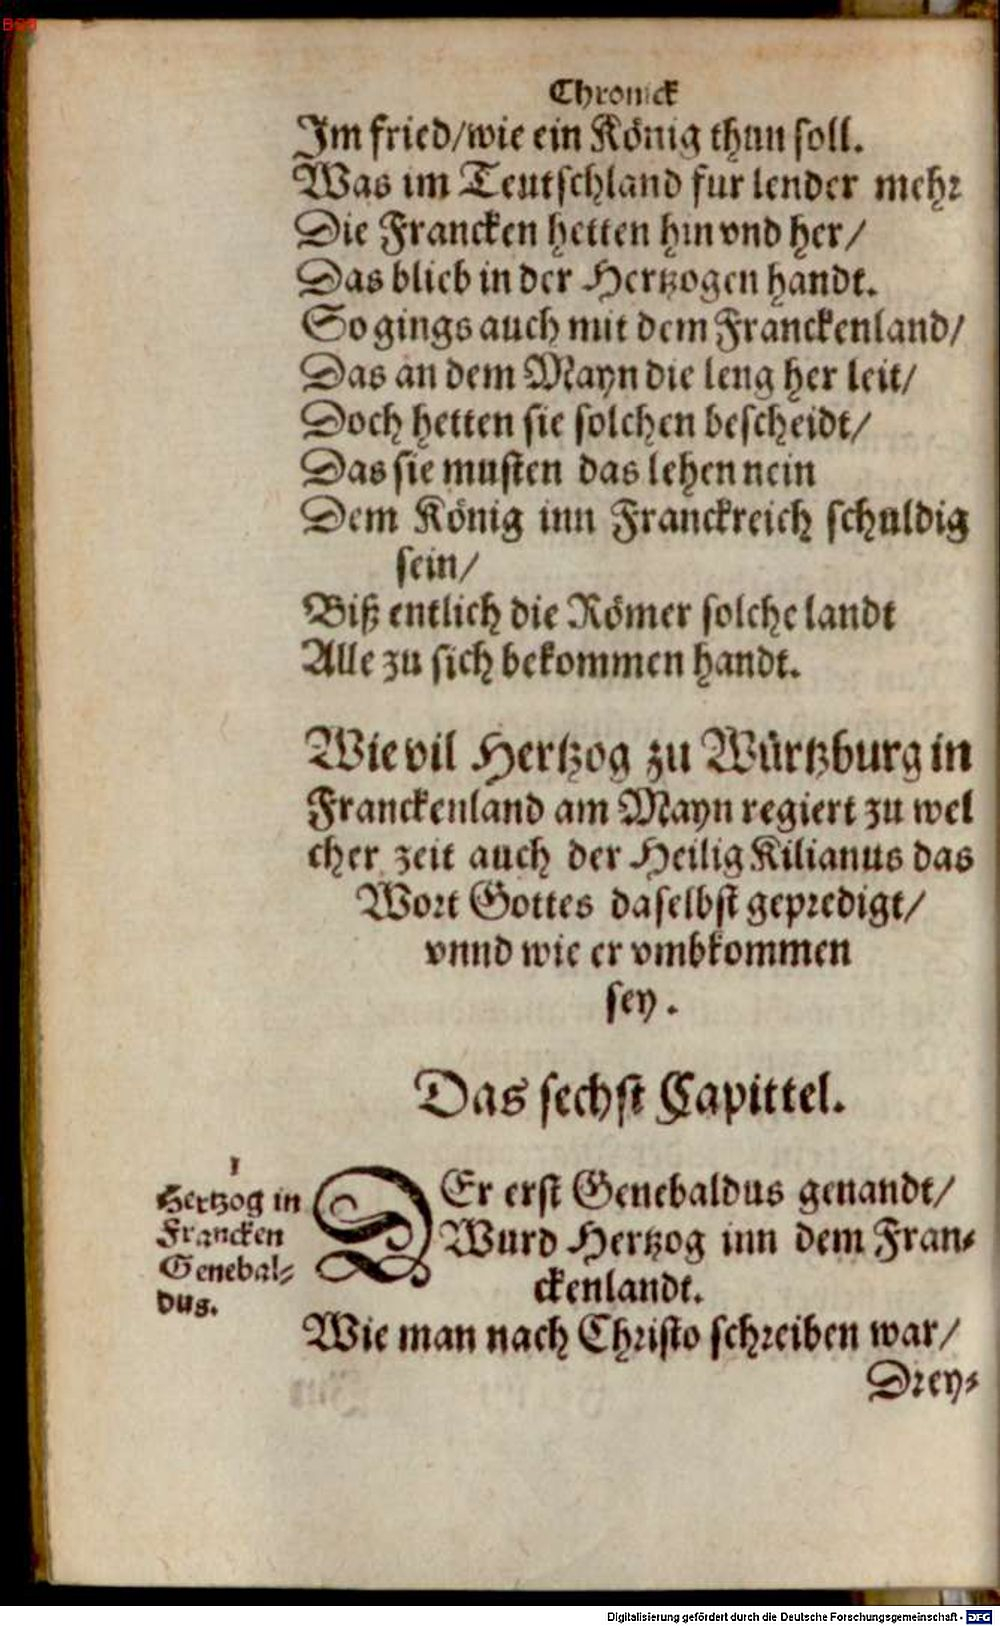 BSB
Chronick
Im fried/wie ein König thun soll.
Was im Teutschland fur lender mehr
Die Francken hetten hin vnd her/
Das blieb in der Hertzogen handt.
So gings auch mit dem Franckenland/
Das an dem Mayn die leng her leit/
Doch hetten sie solchen bescheidt/
Das sie musten das lehen nein
Dem König inn Franckreich schuldig
sein/
Biß entlich die Römer solche landt
Alle zu sich bekommen handt.
Wie vil Hertzog zu Würtzburg in
Franckenland am Mayn regiert zu wel
cher zeit auch der Heilig Kilianus das
Wort Gottes daselbst gepredigt/
vnnd wie er vmbkommen
sey.
Das sechst Capittel.
1
Hertzog in
Francken
Genebal-
dus.
DEr erst Genebaldus genandt/
Wurd Hertzog inn dem Fran-
ckenlandt.
Wie man nach Christo schreiben war/
Drey-
Digitalisierung gefördert durch die Deutsche Forschungsgemeinschaft - DFG